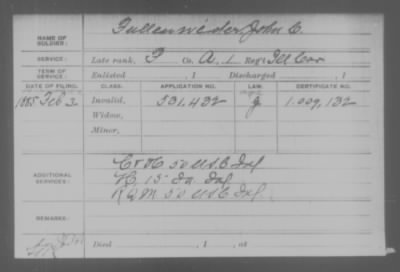 NAME OF SOLDIER: Fullenwider, John C.
SERVICE: Late rank, P Co. A, 1 Reg't Ill Cav
TERM OF SERVICE: Enlisted , 1 Discharged , 1
DATE OF FILING. CLASS. APPLICATION NO. LAW. CERTIFICATE NO.
1885 Feb 3 Invalid, 531,432 1.009,132
Widow,
Minor,
C & H 50 U.S.C Inf
ADDITIONAL SERVICES: K, 15 Ia Inf
RQM 50 U.S.C Inf.
REMARKS:
Died , 1 , at